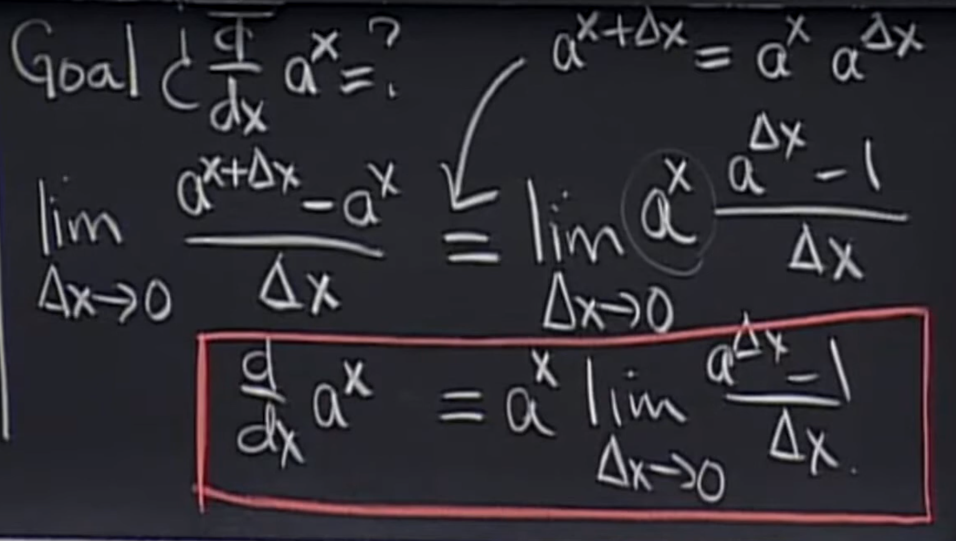 Goal ¿ d/dx a^x = ?
a^(x+Δx) = a^x a^(Δx)
lim Δx→0 (a^(x+Δx) - a^x)/Δx = lim Δx→0 a^x (a^(Δx) - 1)/Δx
d/dx a^x = a^x lim Δx→0 (a^(Δx) - 1)/Δx.